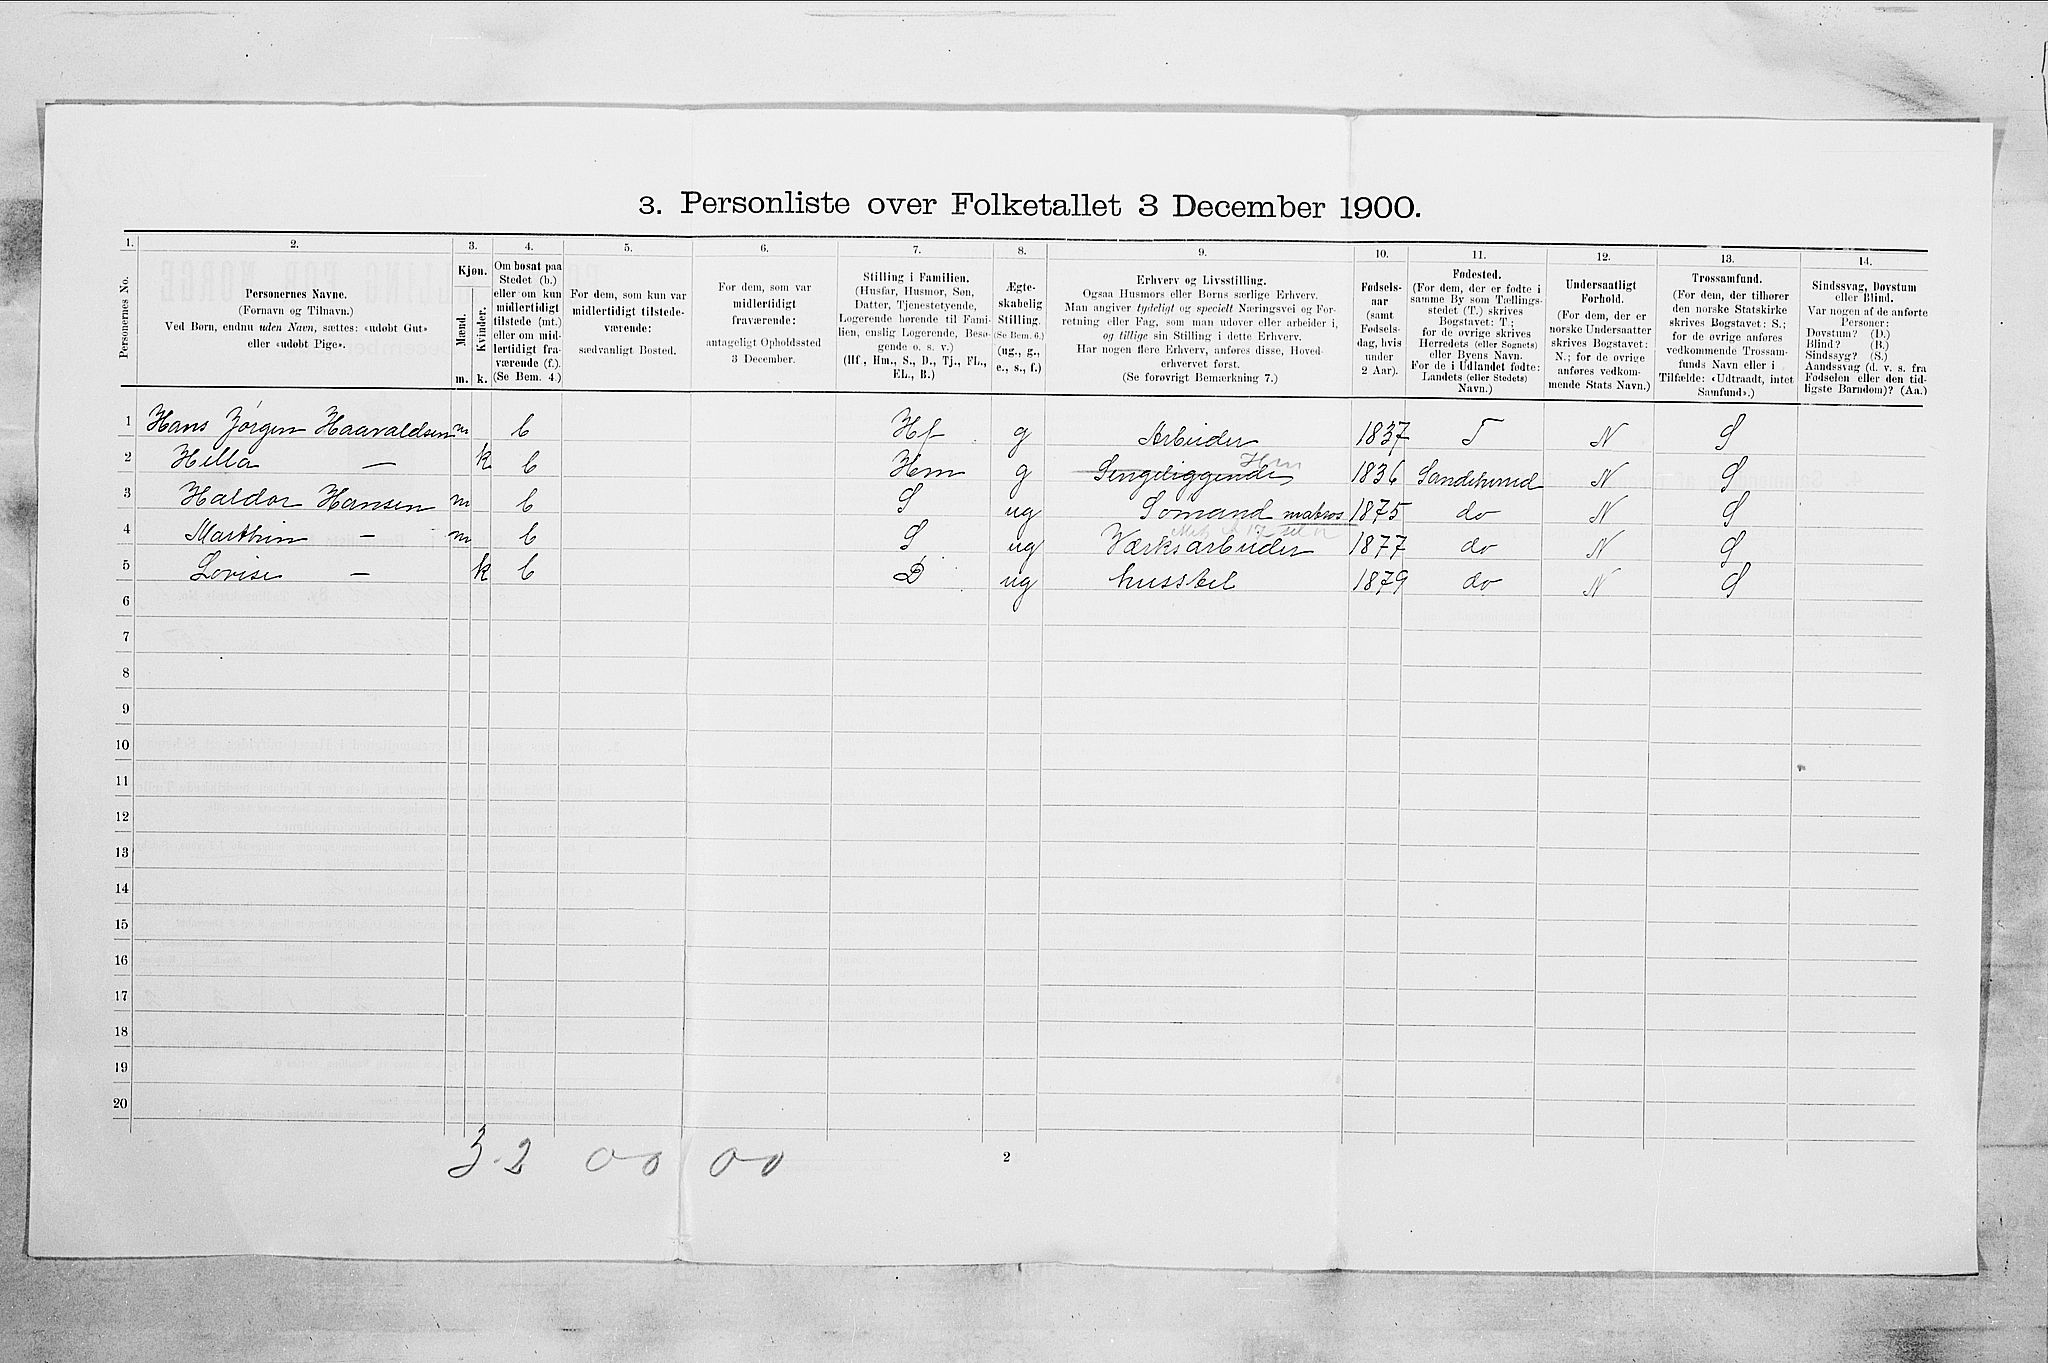 3. Personliste over Folketallet 3 December 1900.
1. 2. 3. 4. 5. 6. 7. 8. 9. 10. 11. 12. 13. 14.
Personernes No.
Personernes Navne.
(Fornavn og Tilnavn.)
Ved Børn, endnu uden Navn, sættes: «udøbt Gut»
eller «udøbt Pige».
Kjøn.
Mænd.
Kvinder.
m. k.
Om bosat paa
Stedet (b.)
eller om kun
midlertidigt
tilstede (mt.)
eller om mid-
lertidigt fra-
værende (f.)
(Se Bem. 4.)
For dem, som kun var
midlertidigt tilstede-
værende:
sædvanligt Bosted.
For dem, som var
midlertidigt
fraværende:
antageligt Opholdssted
3 December.
Stilling i Familien.
(Husfar, Husmor, Søn,
Datter, Tjenestetyende,
Logerende hørende til Fami-
lien, enslig Logerende, Besø-
gende o. s. v.)
(Hf., Hm., S., D., Tj., FL.,
EL., B.)
Ægte-
skabelig
Stilling.
(Se Bem. 6.)
(ug., g.,
e., s., f.)
Erhverv og Livsstilling.
Ogsaa Husmors eller Børns særlige Erhverv.
Man angiver tydeligt og specielt Næringsvei og For-
retning eller Fag, som man udøver eller arbeider i,
og tillige sin Stilling i dette Erhverv.
Har nogen flere Erhverv, anføres disse, Hoved-
erhvervet først.
(Se forøvrigt Bemærkning 7.)
Fødsels-
aar
(samt
Fødsels-
dag, hvis
under
2 Aar).
Fødested.
(For dem, der er fødte i
samme By som Tællings-
stedet (T.) skrives
Bogstavet: T.;
for de øvrige skrives
Herredets (eller Sognets)
eller Byens Navn.
For de i Udlandet fødte:
Landets (eller Stedets)
Navn.)
Undersaatligt
Forhold.
(For dem, der er
norske Undersaatter
skrives Bogstavet:
N.; for de øvrige
anføres vedkom-
mende Stats Navn.)
Trossamfund.
(For dem, der tilhører
den norske Statskirke
skrives Bogstavet: S.;
for de øvrige anføres
vedkommende Trossam-
funds Navn eller i
Tilfælde: «Udtraadt, intet
Samfund».)
Sindssvag, Døvstum
eller Blind.
Var nogen af de anførte
Personer:
Døvstum? (D.)
Blind? (B.)
Sindssyg? (S.)
Aandssvag (d. v. s. fra
Fødselen eller den tid-
ligste Barndom)? (Aa.)
1 Hans Jørgen Haavaldsen m b Hf g Arbeider 1837 T N S
2 Hella — k b Hm g Sengeliggende Hm 1836 Sandeherred N S
3 Haldor Hansen m b S ug Sømand matros 1875 do N S
4 Marthin — m b S ug Værksarbeider 1877 do N S
5 Lovise — k b D ug husstel 1879 do N S
6
7
8
9
10
11
12
13
14
15
16
17
18
19
20
3 2 0 0 0 0
2